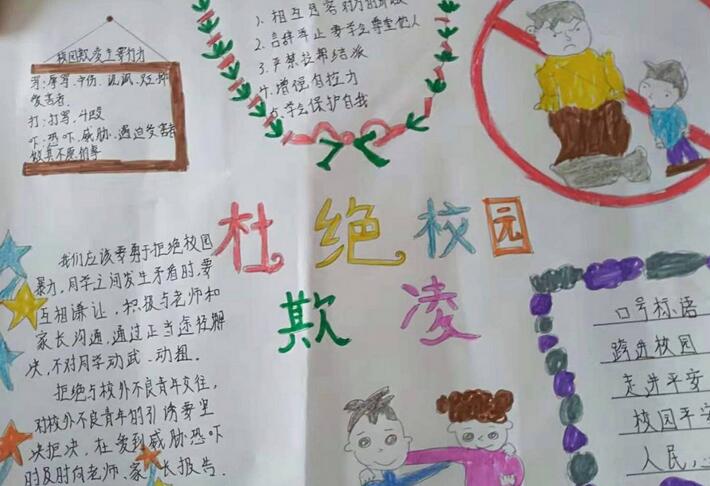 校园欺凌主要行为
骂:辱骂、中伤、讥讽、贬抑
受害者.
打:打骂、斗殴
吓:恐吓、威胁、逼迫受害者
做其不愿的事
1、相互宽容
2、言辞举止要学会尊重他人
3、严禁拉帮结派
4、增强自控力
5、学会保护自我
杜绝校园
欺凌
我们应该要勇于拒绝校园
暴力,同学之间发生矛盾时,要
互相谦让,积极与老师和
家长沟通,通过正当途径解
决,不对同学动武、动粗.
拒绝与校外不良青年交往,
对校外不良青年的引诱要坚
决拒决,在受到威胁恐吓
时及时向老师、家长报告.
口号标语
跨进校园
走进平安
校园平安
人民,